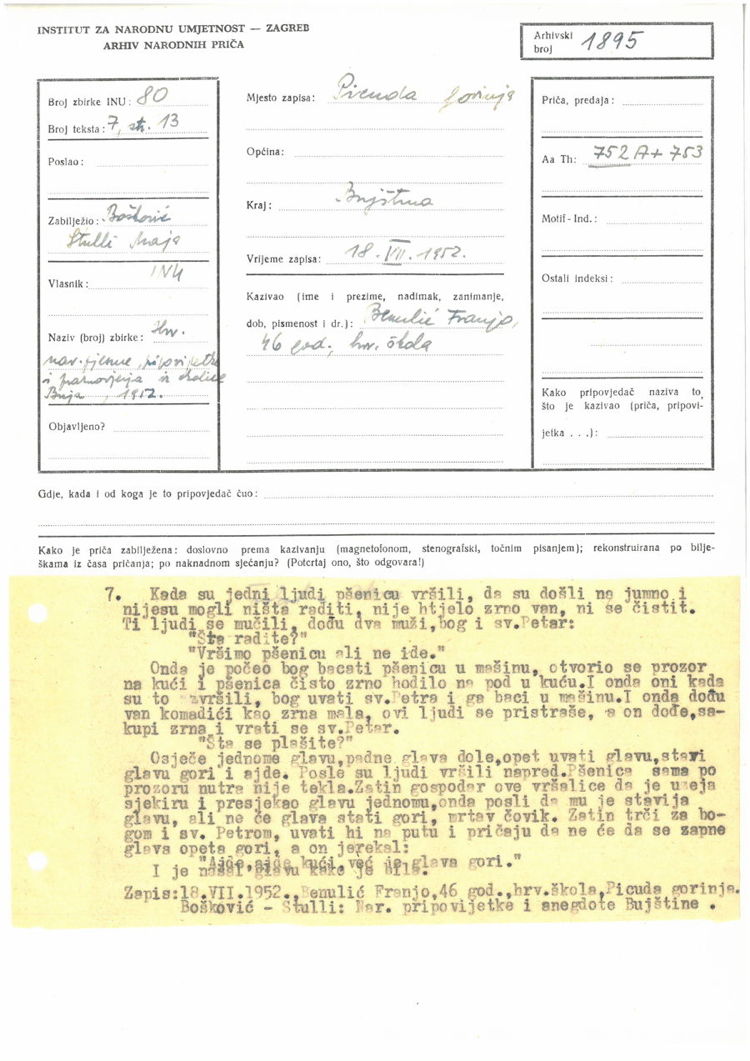 INSTITUT ZA NARODNU UMJETNOST — ZAGREB
ARHIV NARODNIH PRIČA
Arhivski broj 1895
Broj zbirke INU: 80
Broj teksta: 7, str. 13
Poslao:
Zabilježio: Bošković
Stulli Maja
Vlasnik: INU
Naziv (broj) zbirke: Hrv.
nar. pjesme, pripovijetke
i praznovjerja iz okolice
Buja, 1952.
Objavljeno?
Mjesto zapisa: Picuda gorinja
Općina:
Kraj: Bujština
Vrijeme zapisa: 18. VII. 1952.
Kazivao (ime i prezime, nadimak, zanimanje,
dob, pismenost i dr.): Benulić Franjo,
46 god., hrv. škola
Priča, predaja:
Aa Th: 752 A + 753
Motif - Ind.:
Ostali indeksi:
Kako pripovjedač naziva to,
što je kazivao (priča, pripovi-
jetka . . .):
Gdje, kada i od koga je to pripovjedač čuo:
Kako je priča zabilježena: doslovno prema kazivanju (magnetofonom, stenografski, točnim pisanjem); rekonstruirana po bilje-
škama iz časa pričanja; po naknadnom sjećanju? (Potcrtaj ono, što odgovara!)
7. Kada su jedni ljudi pšenicu vršili, da su došli na jumno i
nijesu mogli ništa raditi, nije htjelo zrno van, ni se čistit.
Ti ljudi se mučili, dođu dva muži,bog i sv.Petar:
"Šta radite?"
"Vršimo pšenicu ali ne ide."
Onda je počeo bog bacati pšenicu u mašinu, otvorio se prozor
na kući i pšenica čisto zrno hodilo na pod u kuću.I onda oni kada
su to završili, bog uvati sv.Petra i ga baci u mašinu.I onda dođu
van komadići kao zrna mala, ovi ljudi se pristraše, a on dođe,sa-
kupi zrna i vrati se sv.Petar.
"Šta se plašite?"
Osječe jednome glavu,padne glava dole,opet uvati glavu,stavi
glavu gori i ajde. Posle su ljudi vršili napred.Pšenica sama po
prozoru nutra nije tekla.Zatin gospodar ove vršalice da je uzeja
sjekiru i presjekao glavu jednomu,onda posli da mu je stavija
glavu, ali ne će glava stati gori, mrtav čovik. Zatin trči za bo-
gom i sv. Petrom, uvati hi na putu i pričaju da ne će da se zapne
glava opeta gori, a on jerekal:
"Ajde,ajde kući već je glava gori."
I je našal glavu kako je bila.
Zapis:18.VII.1952.,Benulić Franjo,46 god.,hrv.škola,Picuda gorinja.
Bošković - Stulli: Nar. pripovijetke i anegdote Bujštine .